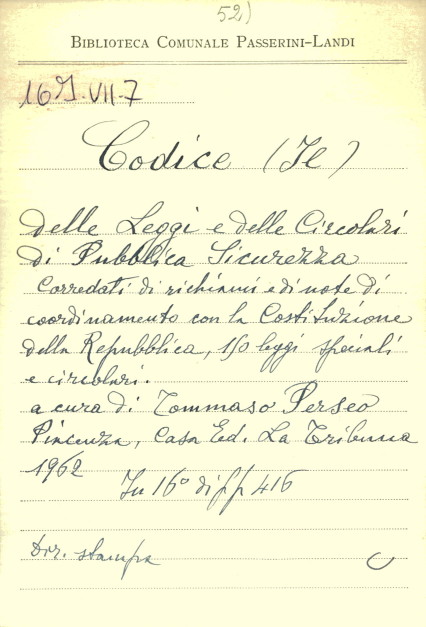 52)
BIBLIOTECA COMUNALE PASSERINI-LANDI
16 I. VII. 7
Codice (Il)
delle Leggi e delle Circolari
di Pubblica Sicurezza
Corredati di richiami e di note di
coordinamento con la Costituzione
della Repubblica, 150 leggi speciali
e circolari.
a cura di Tommaso Perseo
Piacenza, Casa Ed. La Tribuna
1962
In 16° di pp 416
Dir. stampa